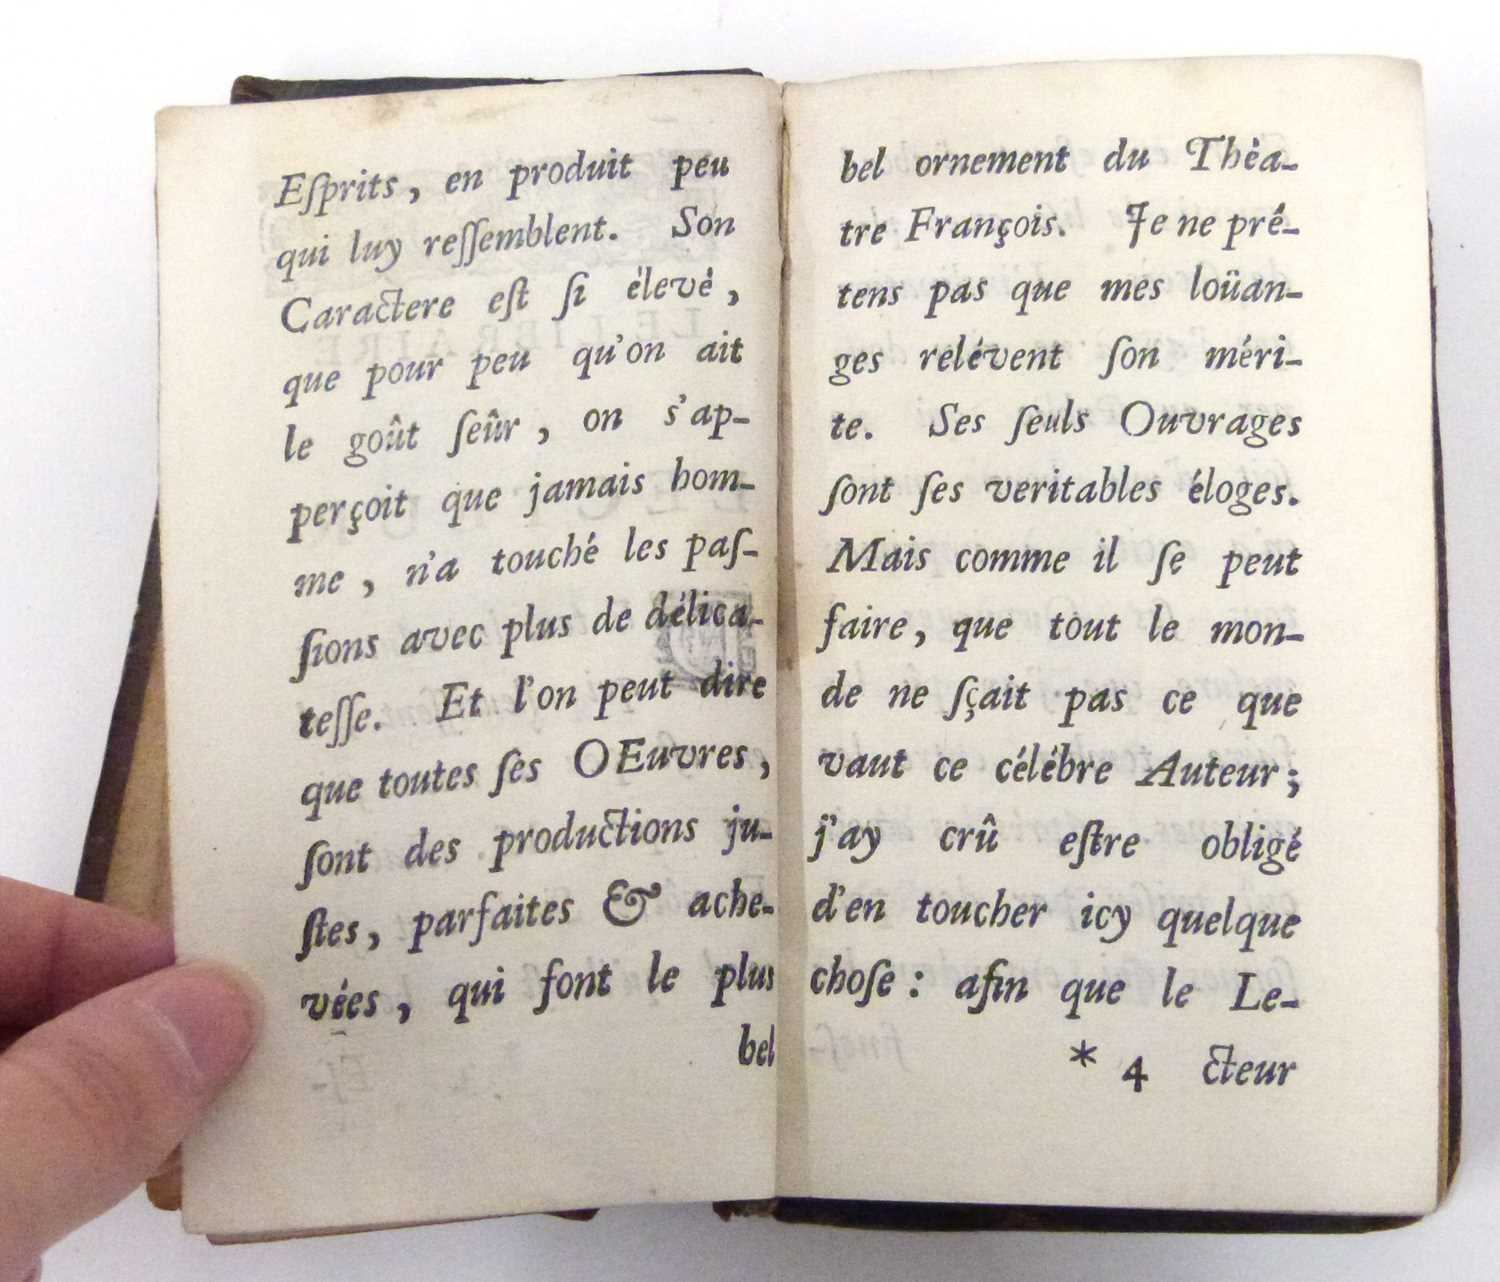 Eſprits, en produit peu
qui luy reſſemblent. Son
Caractere eſt ſi élevé,
que pour peu qu'on ait
le goût ſeûr, on s'ap-
perçoit que jamais hom-
me, n'a touché les paſ-
ſions avec plus de délica-
teſſe. Et l'on peut dire
que toutes ſes OEuvres,
ſont des productions ju-
ſtes, parfaites & ache-
vées, qui font le plus
bel
bel ornement du Théa-
tre François. Je ne pré-
tens pas que mes loüan-
ges relévent ſon méri-
te. Ses ſeuls Ouvrages
ſont ſes veritables éloges.
Mais comme il ſe peut
faire, que tout le mon-
de ne ſçait pas ce que
vaut ce célébre Auteur;
j'ay crû eſtre obligé
d'en toucher icy quelque
choſe: afin que le Le-
* 4 cteur